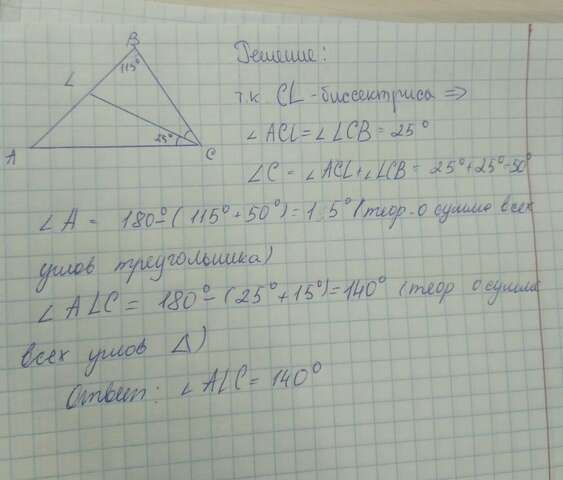 B
115°
L
25°
A
C
Решение:
т.к. CL - биссектриса =>
∠ACL = ∠LCB = 25°
∠C = ∠ACL + ∠LCB = 25° + 25° = 50°
∠A = 180° - (115° + 50°) = 15° (теор. о сумме всех
углов треугольника)
∠ALC = 180° - (25° + 15°) = 140° (теор о сумме
всех углов Δ)
Ответ: ∠ALC = 140°